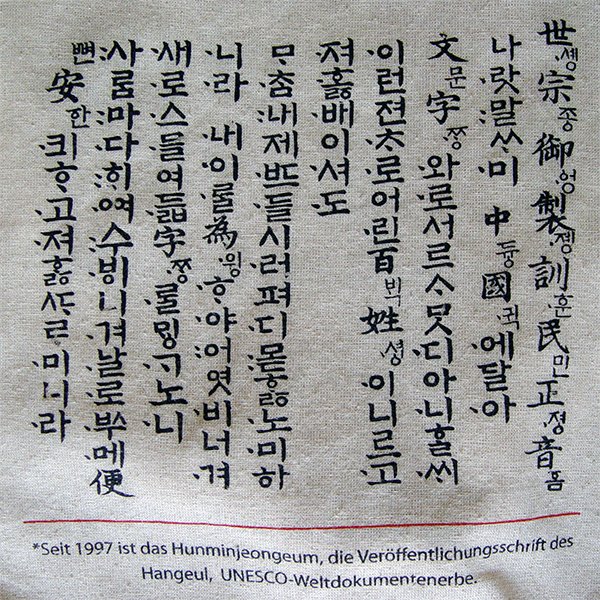 世솅宗종御엉製졩訓훈民민正졍音ᅙᅳᆷ
나·랏:말ᄊᆞ·미 中듕國귁·에달·아
文문字ᄍᆞᆼ·와·로서르ᄉᆞᄆᆞᆺ·디아·니ᄒᆞᆯ·ᄊᆡ
·이런젼·ᄎᆞ·로어·린百ᄇᆡᆨ姓셩·이니르·고
·져·호ᇙ·배이·셔·도
ᄆᆞ·ᄎᆞᆷ:내제·ᄠᅳ·들시·러펴·디:몯ᄒᆞᇙ·노·미하
·니·라 ·내·이·ᄅᆞᆯ爲윙·ᄒᆞ·야:어엿·비너·겨
·새·로·스·믈여·듧字ᄍᆞᆼ·ᄅᆞᆯᄆᆡᇰ·ᄀᆞ노·니
:사ᄅᆞᆷ:마·다:ᄒᆡ·ᅇᅧ:수·ᄫᅵ니·겨·날·로·ᄡᅮ·메便
뼌安한·킈ᄒᆞ·고·져ᄒᆞᇙᄯᆞᄅᆞ·미니·라
*Seit 1997 ist das Hunminjeongeum, die Veröffentlichungsschrift des
Hangeul, UNESCO-Weltdokumentenerbe.